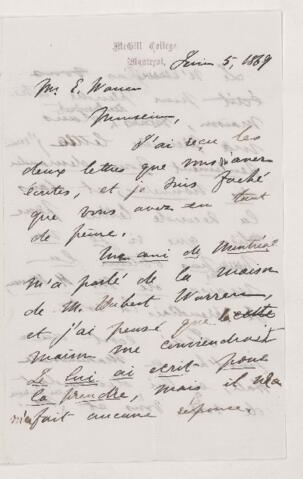 McGill College,
Montreal,
Juin 5, 1869
Mr E. Warren
Monsieur,
J'ai reçu les
deux lettres que vous avez
écrites, et je suis faché
que vous avez eu tant
de peine.
Un ami de Montréal
m'a parlé de la maison
de M. Hubert Warren,
et j'ai pensé que cette
maison me conviendrait
Je lui ai ecrit pour
la prendre, mais il
m'a fait aucune réponse.